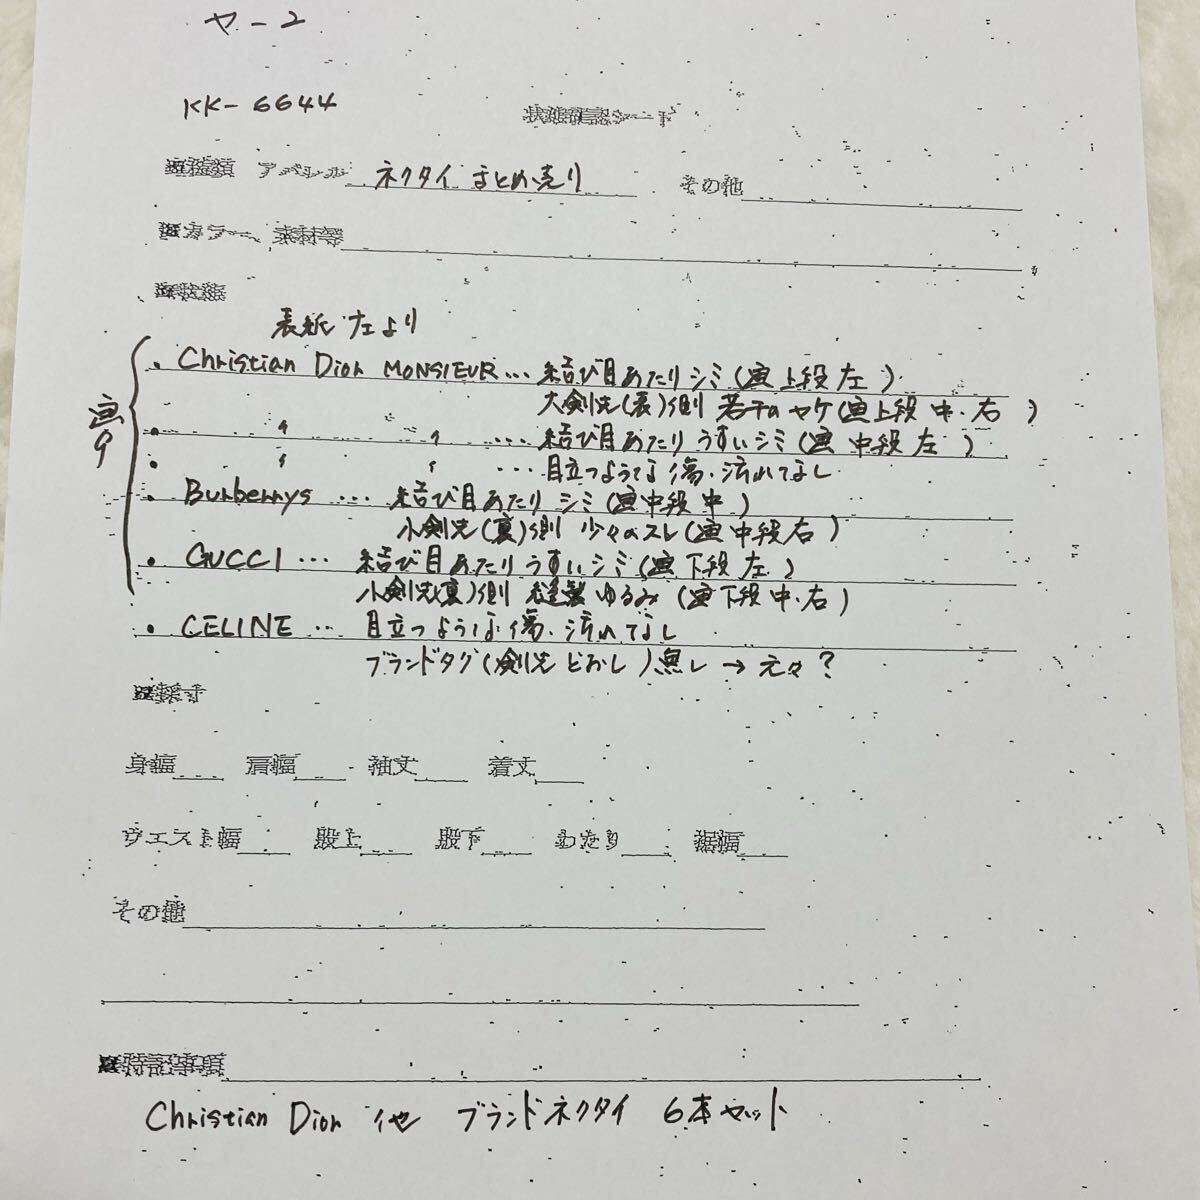 ヤ-2
KK-6644
状態確認シート
■種類 アパレル ネクタイ まとめ売り その他
■カラー、素材等
■状態
表紙 左より
画9
・Christian Dior MONSIEUR … 結び目あたりシミ(画上段左)
大剣先(表)側 若干のヤケ(画上段中・右)
・ 〃 〃 … 結び目あたりうすいシミ(画中段左)
・ 〃 〃 … 目立つような傷・汚れてなし
・Burberrys … 結び目あたりシミ(画中段中)
小剣先(裏)側 少々のスレ(画中段右)
・GUCCI … 結び目あたりうすいシミ(画下段左)
小剣先(裏)側 縫製ゆるみ(画下段中・右)
・CELINE … 目立つような傷・汚れてなし
ブランドタグ(剣先どおし)無し → 元々?
■採寸
身幅 肩幅 袖丈 着丈
ウエスト幅 股上 股下 わたり 裾幅
その他
■特記事項
Christian Dior 他 ブランドネクタイ 6本セット